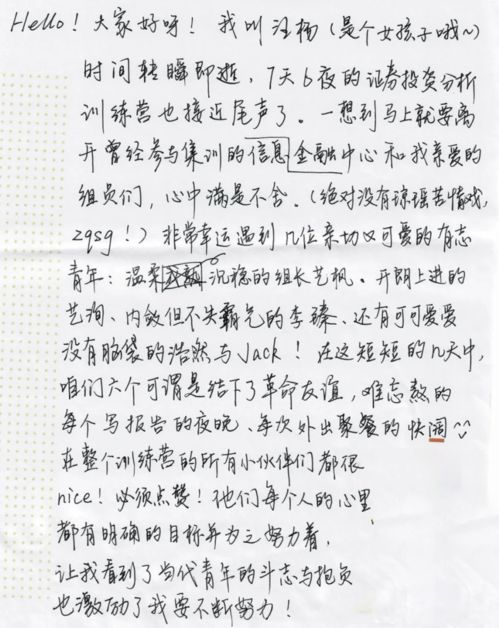 Hello！大家好呀！我叫汪杨（是个女孩子哦~）
时间转瞬即逝，7天6夜的证券投资分析
训练营也接近尾声了。一想到马上就要离
开曾经参与集训的信息金融中心和我亲爱的
组员们，心中满是不舍。（绝对没有琼瑶苦情戏，
zqsg！）非常幸运遇到几位亲切又可爱的有志
青年：温柔沉稳的组长艺枫、开朗上进的
艺洵、内敛但不失霸气的李臻、还有可可爱爱
没有脑袋的浩然与Jack！在这短短的几天中，
咱们六个可谓是结下了革命友谊，难忘熬的
每个写报告的夜晚、每次外出聚餐的快阔
在整个训练营的所有小伙伴们都很
nice！必须点赞！他们每个人的心里
都有明确的目标并为之努力着，
让我看到了当代青年的斗志与抱负
也激励了我要不断努力！